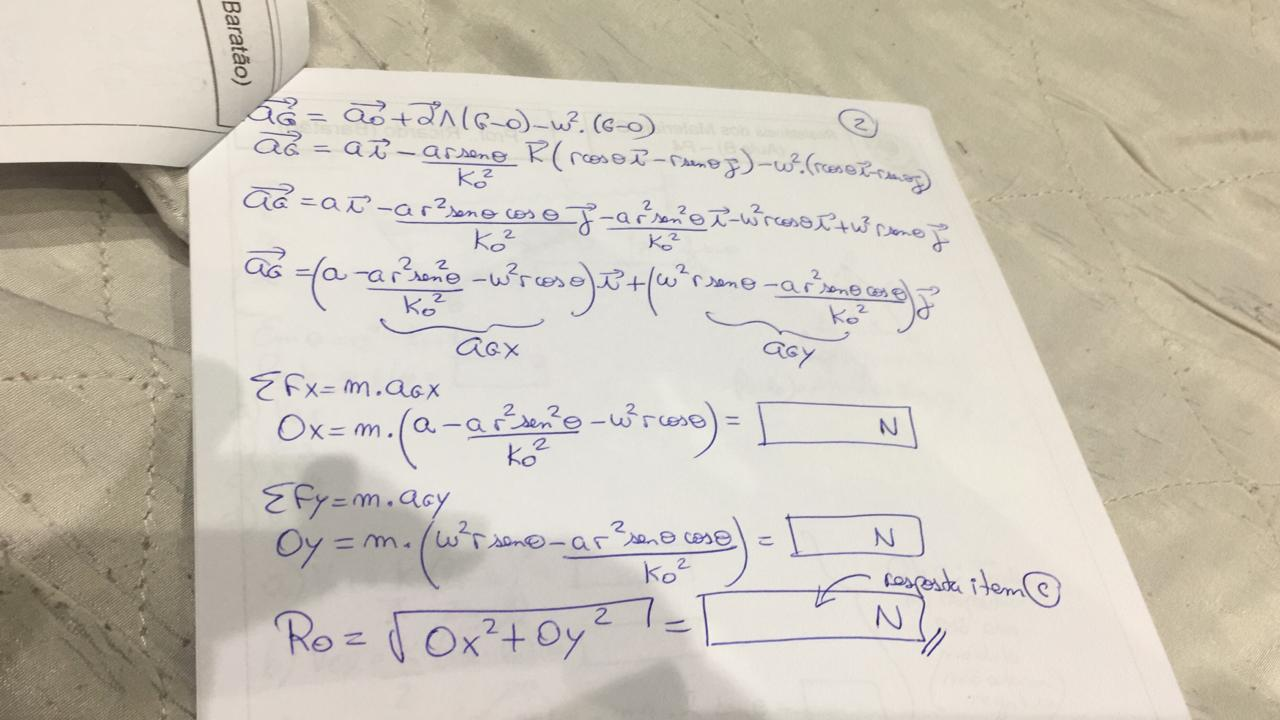 Baratão)
②
a⃗G = a⃗o + α⃗ Λ (G-O) - ω². (G-O)
a⃗G = a i⃗ - (a r senθ / Ko²) K⃗ (r cosθ i⃗ - r senθ j⃗) - ω². (r cosθ i⃗ - r senθ j⃗)
a⃗G = a i⃗ - (a r² senθ cosθ / Ko²) j⃗ - (a r² sen²θ / Ko²) i⃗ - ω² r cosθ i⃗ + ω² r senθ j⃗
a⃗G = (a - a r² sen²θ / Ko² - ω² r cosθ) i⃗ + (ω² r senθ - a r² senθ cosθ / Ko²) j⃗
aGX aGY
ΣFX = m.aGX
OX = m.(a - a r² sen²θ / Ko² - ω² r cosθ) = N
ΣFY = m.aGY
OY = m.(ω² r senθ - a r² senθ cosθ / Ko²) = N
resposta item ⓒ
Ro = √(OX² + OY²) = N //